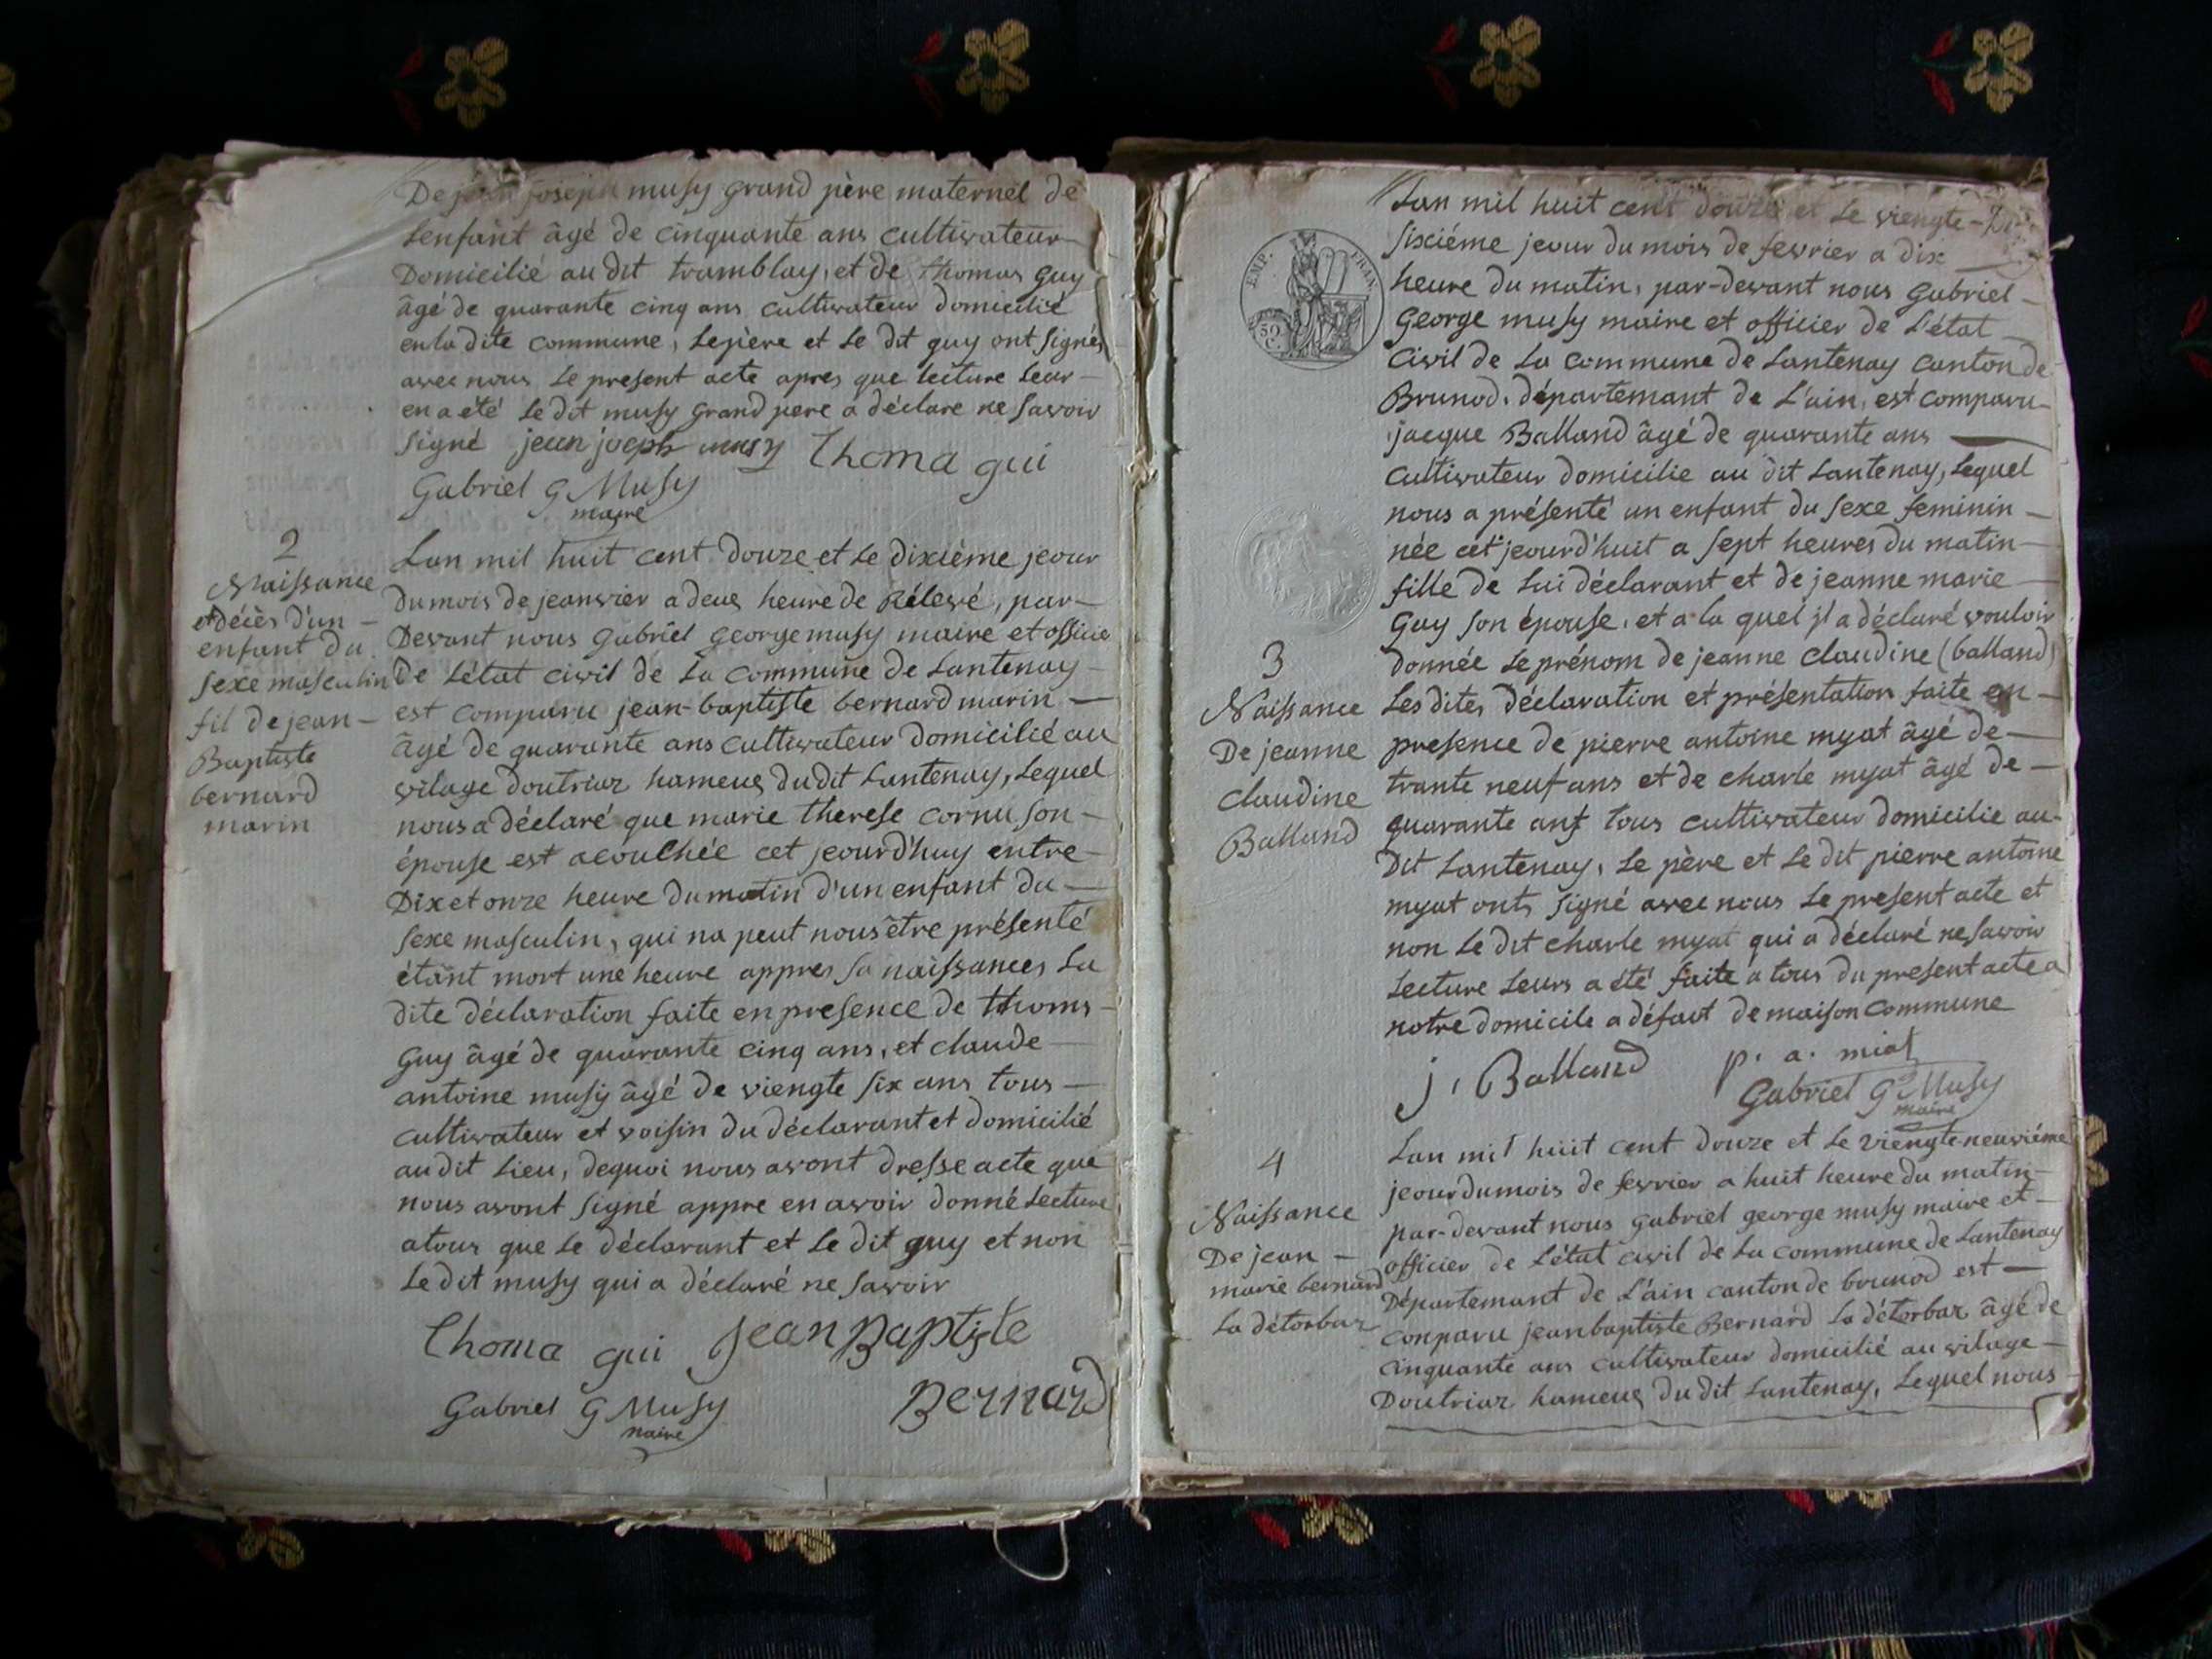 De jean joseph musy grand père maternel de
Lenfant âgé de cinquante ans cultivateur
Domicilié au dit tramblay, et de thomas guy
âgé de quarante cinq ans cultivateur domicilié
en la dite commune, Lepère et Le dit guy ont signés
avec nous Le present acte apres que lecture Leur
en a été Le dit musy grand pere a déclare ne Savoir
Signé jean joseph musy Thoma gui
Gabriel G Musy
maire
2
Naissance
et décès d'un
enfant du
Sexe masculin
fil de jean
Baptiste
bernard
marin
Lan mil huit cent douze et Le dixième jeour
du mois de jeanvier a deux heure de Rélevé, par-
Devant nous Gabriel George musy maire et officie
De L'état civil de La commune de Lantenay
est comparu jean-baptiste bernard marin
âgé de quarante ans cultivateur Domicilié au
vilage doutriaz hameux du dit Lantenay, Lequel
nous a déclaré que marie therese cornu Son
épouse est acouchée cet jeourd'huy entre
Dix et onze heure du matin d'un enfant du
Sexe masculin, qui na peut nous être présenté
étant mort une heure appres Sa naissances La
dite déclaration faite en presence de thoms
Guy âgé de quarante cinq ans, et claude
antoine musy âgé de viengte Six ans tous
cultivateur et voisin du déclarant et domicilié
au dit Lieu, dequoi nous avont dresse acte que
nous avont Signé appre en avoir donné Lecture
atous que Le déclarant et Le dit guy et non
Le dit musy qui a déclaré ne Savoir
Thoma gui Jean Baptiste
Bernard
Gabriel G Musy
maire
EMP. FRAN.
50 C.
Lan mil huit cent douze et Le viengte
Sixiéme jeour du mois de fevrier a dix
heure du matin, par-devant nous Gabriel
George musy maire et officier de L'état
Civil de La commune de Lantenay canton de
Brunod, département de L'ain, est comparu
jacque Balland âgé de quarante ans
cultivateur domicilie au dit Lantenay, Lequel
nous a présenté un enfant du Sexe feminin
née cet jeourd'huit a Sept heures du matin
fille de Lui déclarant et de jeanne marie
Guy Son épouse, et a la quel jl a déclaré vouloir
donnée Le prénom de jeanne claudine (balland)
Les dites déclaration et présentation faite en
presence de pierre antoine myat âgé de
trante neuf ans et de charle myat âgé de
quarante ans tous cultivateur domicilie au
Dit Lantenay, Le père et Le dit pierre antoine
myat onts Signé avec nous Le present acte et
non Le dit charle myat qui a déclaré ne Savoir
Lecture Leurs a été faite a tous du present acte a
notre domicile a défaut de maison commune
3
Naissance
De jeanne
claudine
Balland
j, Balland p. a. miat
Gabriel G Musy
maire
4
Naissance
De jean
marie bernard
La détorbaz
Lan mil huit cent douze et Le viengte-neuviéme
jeour du mois de fevrier a huit heure du matin
par-devant nous gabriel george musy maire et
officier de L'état civil de La commune de Lantenay
Département de L'ain canton de brunod est
conparu jean baptiste Bernard La détorbaz âgé de
cinquante ans cultivateur domicilié au vilage
Doutriaz hameux du dit Lantenay, Lequel nous